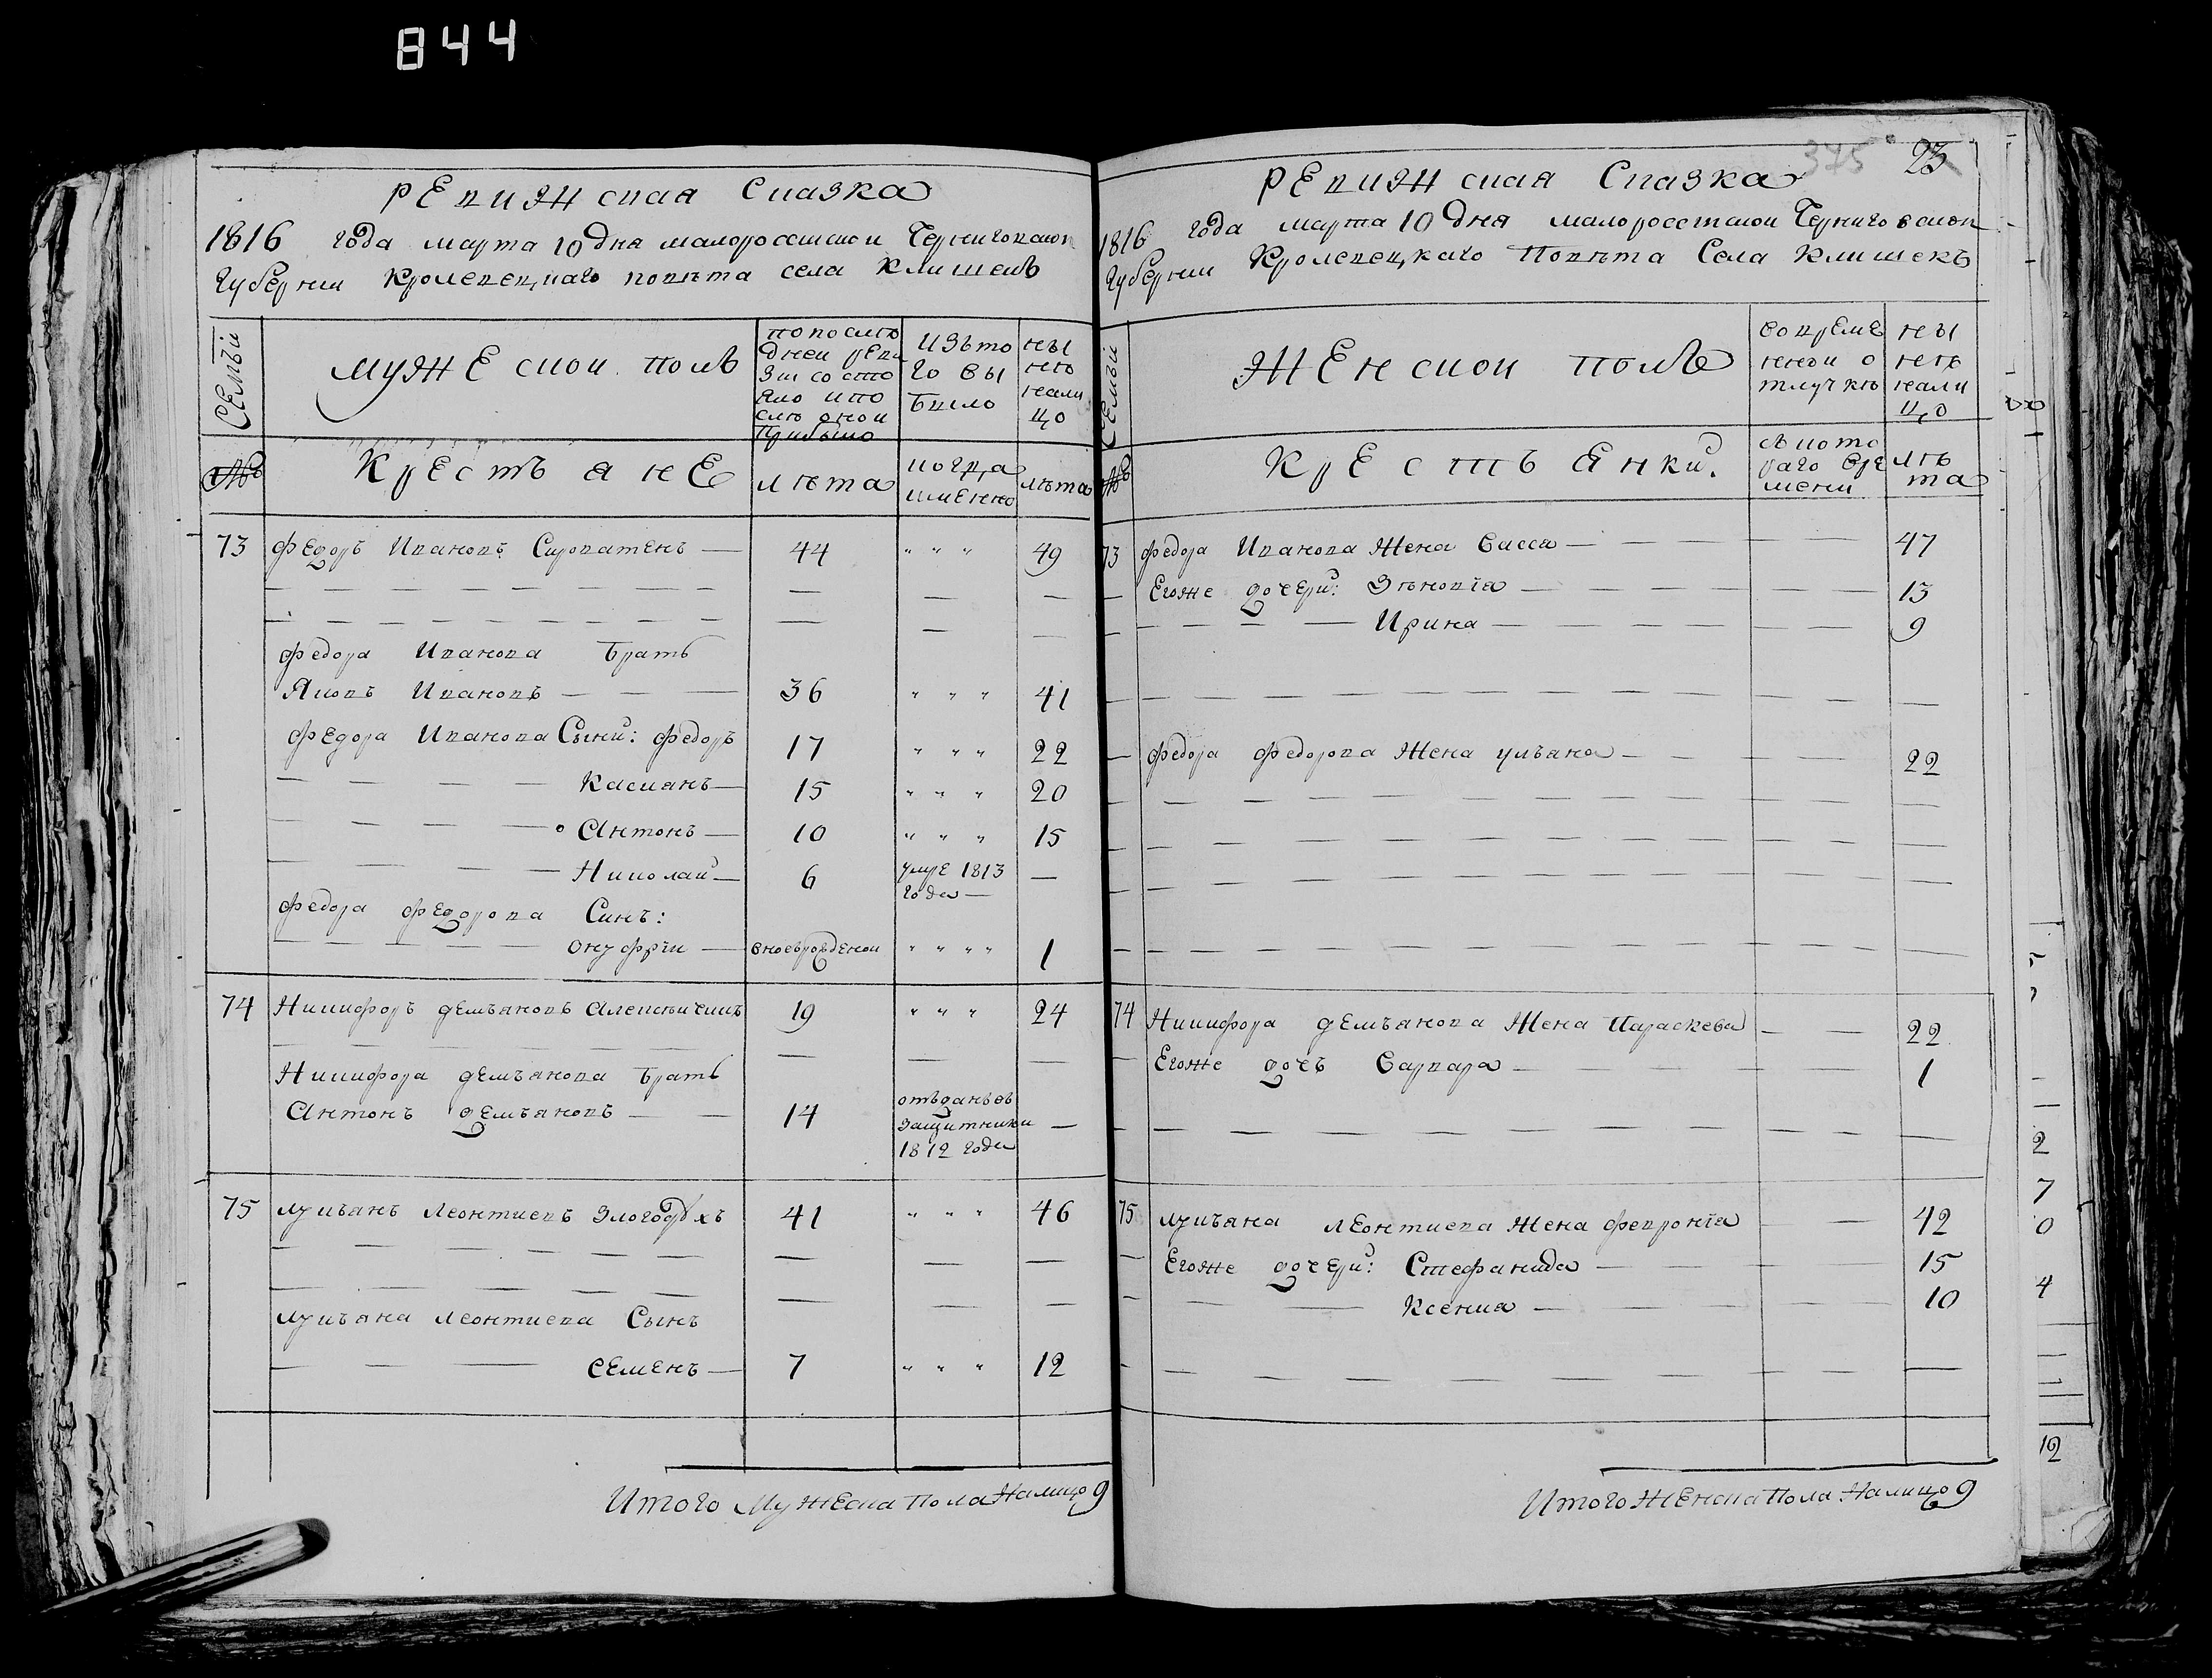 844
Ревижская Сказка
1816 года марта 10 дня малороссискои Черниговскои
Губернии Кролевецкаго повѣта села Клишекъ
Семьи
мужескои полъ
по послѣ
днеи реви
зии состо
яло и по
слѣ онои
прибыло
Изъ то
го вы
было
ны
нѣ
нали
цо
№
Крестьяне
лѣта
когда
имянно
лѣта
73 Федоръ Ивановъ Сироватенъ — 44 " " " 49
Федора Иванова братъ
Яковъ Ивановъ — 36 " " " 41
Федора Иванова Сыни: Федоръ 17 " " " 22
Касианъ — 15 " " " 20
Антонъ — 10 " " " 15
Николай — 6 умре 1813 —
года —
Федора Федорова Синъ:
Онуфрїи — вновьрожденои " " " " 1
74 Никифоръ Демьяновъ 19 " " " 24
Никифора Демьянова братъ
Антонъ Демьяновъ — 14 отъданъвъ —
защитники
1812 года
75 Лукьянъ Леонтиевъ Злогодухъ 41 " " " 46
Лукьяна Леонтиева Сынъ
Семенъ — 7 " " " 12
Итого Мужеска пола Налицо 9
375 23
Ревижская Сказка
1816 года марта 10 дня малороссискои Черниговскои
Губернии Кролевецкаго Повѣта Села Клишекъ
Семьи
Женскои полъ
во време
ннои о
тлучкѣ
ны
нѣ
нали
цо
№
Крестьянки.
съ кото
раго вре
мени
лѣ
та
73 Федора Иванова Жена Васса — 47
Егоже дочери: Зѣновїа — 13
Ирина — 9
Федора Федорова Жена Ульяна — 22
74 Никифора Демьянова Жена Параскева — 22
Егоже дочъ Варвара — 1
75 Лукьяна Леонтиева Жена Февронїа — 42
Егоже дочери: Стефанида — 15
Ксения — 10
Итого Женска Пола Налицо 9
2
7
0
4
12